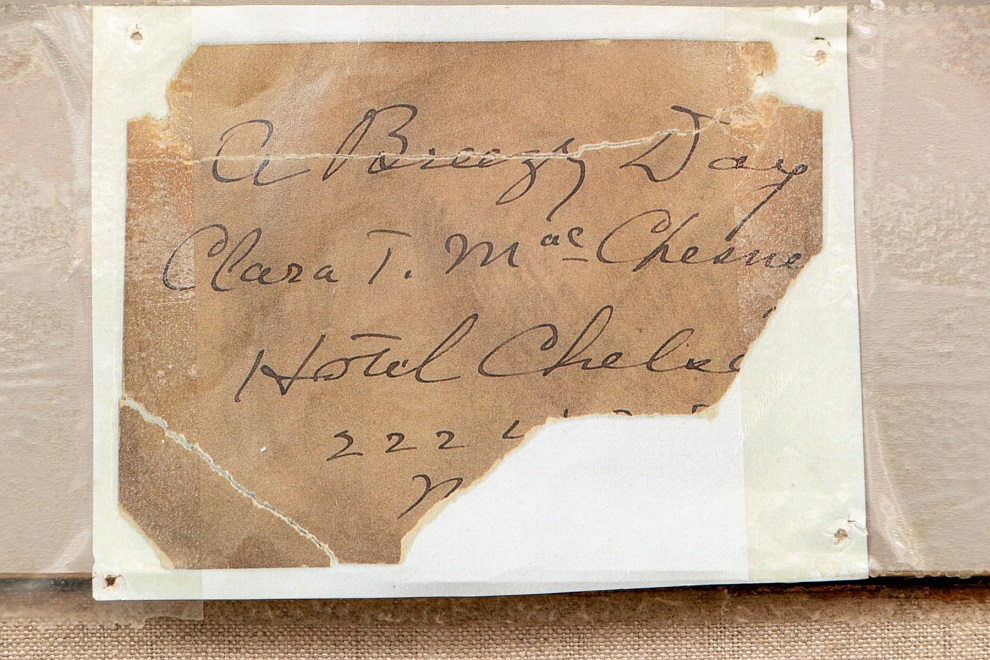 A Breezy Day
Clara T. MacChesne
Hotel Chelsea
222